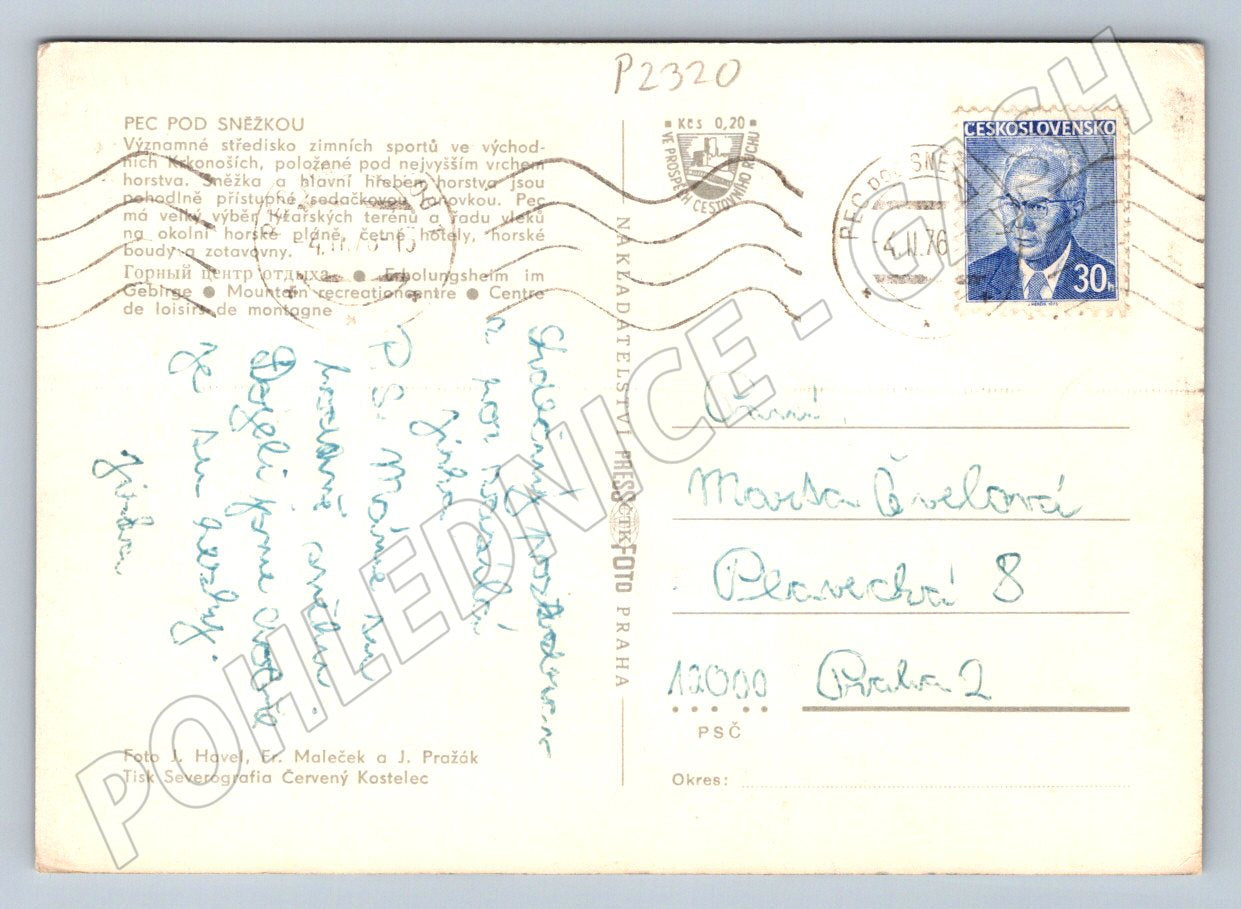 P2320
PEC POD SNĚŽKOU
Významné středisko zimních sportů ve východ-
ních Krkonoších, položené pod nejvyšším vrchem
horstva. Sněžka a hlavní hřeben horstva jsou
pohodlně přístupné sedačkovou lanovkou. Pec
má velký výběr lyžařských terénů a řadu vleků
na okolní horské pláně, četné hotely, horské
boudy a zotavovny.
Горный центр отдыха ● Erholungsheim im
Gebirge ● Mountain recreationcentre ● Centre
de loisirs de montagne
Srdečný pozdrav
a
P.S. Máme
Dojeli jsme dobře
je
Jirka
Foto J. Havel, Fr. Maleček a J. Pražák
Tisk Severografia Červený Kostelec
NAKLADATELSTVÍ PRESSFOTO PRAHA
ČTK
Kčs 0,20
VE PROSPĚCH CESTOVNÍHO RUCHU
PEC POD SNĚ
-4.II.76
ČESKOSLOVENSKO
30h
Marta
Plavecká 8
12000 Praha 2
PSČ
Okres:
POHLEDNICE - GASH